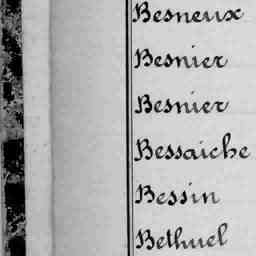 Besneux
Besnier
Besnier
Bessaiche
Bessin
Bethuel